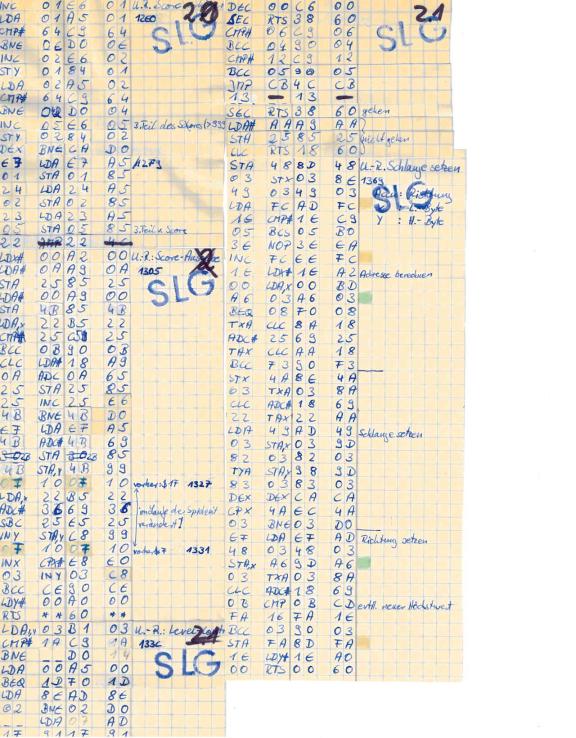 INC 01 E6 01 U.-R.: Score
LDA 01 A5 01 1260
CMP# 64 C9 64 SLG
BNE 0E D0 0E
INC 02 E6 02
STY 01 84 01
LDA 02 A5 02
CMP# 64 C9 64
BNE 04 D0 04
INC 05 E6 05 3.Teil des Scores (>999
STY 02 84 02
DEX BNE CA D0
E7 LDA E7 A5 1279
01 STA 01 85
24 LDA 24 A5
02 STA 02 85
23 LDA 23 A5
05 STA 05 85 3.Teil v. Score
22 22 4C
LDX# 00 A2 00 U.-R.: Score-
LDA# 0A A9 0A 1305
STA 25 85 25 SLG
LDA# 00 A9 00
STA 4B 85 4B
LDA,x 22 B5 22
CMP# 25 C5 25
BCC 0B 90 0B
CLC LDA# 18 A9
0A ADC 0A 65
25 STA 25 85
25 INC 25 E6
4B BNE 4B D0
E7 LDA E7 A5
4B ADC# 4B 69
STA 85
4B STA,y 4B 99
07 10 07 10 vorher: $17 1327
LDA,x 22 B5 22
ADC# 36 69 36
SBC 25 E5 25 verändert]
INY STA,y C8 99
07 10 07 10 1331
INX CPX# E8 E0
03 INY 03 C8
BCC CE 90 CE
LDY# 00 A0 00
RTS ** 60 **
LDA,y 03 B1 03 U.-R.:
CMP# 1A C9 1A 133C
BNE D0 14 SLG
LDA 00 A5 00
BEQ 1D F0 1D
LDA 8E AD 8E
02 BNE 02 D0
LDA 07 AD
17 91 17 91
DEC 00 C6 00 21
SEC RTS 38 60 SLG
CMP# 06 C9 06
BCC 04 90 04
CMP# 12 C9 12
BCC 05 90 05
JMP CB 4C CB
13 13
SEC RTS 38 60 gehen
LDA# AA A9 AA
STA 25 85 25 nicht gehen
CLC RTS 18 60
STA 48 8D 48 U.-R. Schlange setzen
03 STX 03 8E 1369
49 03 49 03 SLG Richtung
LDA FC AD FC L.-Byte
1E CMP# 1E C9 Y : H.-Byte
05 BCS 05 B0
3E NOP 3E EA
INC FC EE FC
1E LDX# 1E A2 Adresse berechnen
00 LDA,x 00 BD
A6 03 A6 03
BEQ 08 F0 08
TXA CLC 8A 18
ADC# 25 69 25
TAX CLC AA 18
BCC F3 90 F3
STX 4A 8E 4A
03 TXA 03 8A
CLC ADC# 18 69
22 TAX 22 AA
LDA 49 AD 49 Schlange setzen
03 STA,x 03 9D
82 03 82 03
TYA STA,x 98 9D
83 03 83 03
DEX DEX CA CA
CPX 4A EC 4A
03 BNE 03 D0
E7 LDA E7 AD Richtung setzen
48 03 48 03
STA,x A6 9D A6
03 TXA 03 8A
CLC ADC# 18 69
0B CMP 0B CD evtl. neuer Höchstwert
FA 1E FA 1E
BCC 03 90 03
STA FA 8D FA
1E LDY# 1E A0
00 RTS 00 60